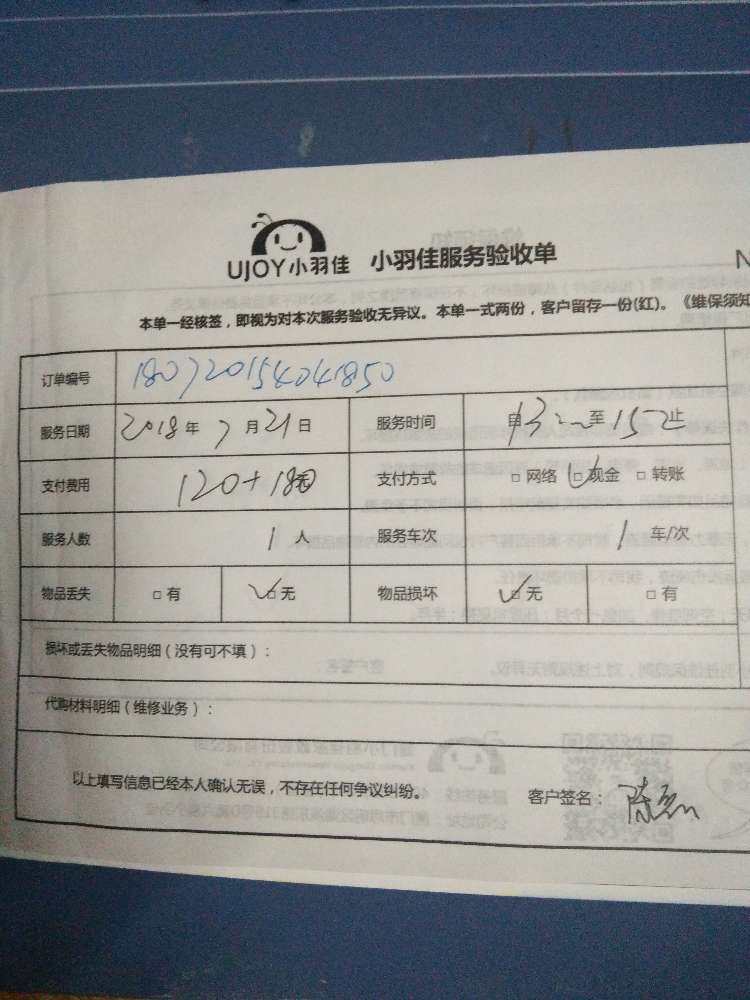 UJOY小羽佳 小羽佳服务验收单
N
本单一经核签，即视为对本次服务验收无异议。本单一式两份，客户留存一份(红)。《维保须知
订单编号 180720154041850
服务日期 2018年7月21日 服务时间 自13:00至15:00止
支付费用 120+180元 支付方式 □网络 ☑现金 □转账
服务人数 1人 服务车次 1车/次
物品丢失 □有 ☑无 物品损坏 ☑无 □有
损坏或丢失物品明细（没有可不填）：
代购材料明细（维修业务）：
以上填写信息已经本人确认无误，不存在任何争议纠纷。 客户签名：陈磊